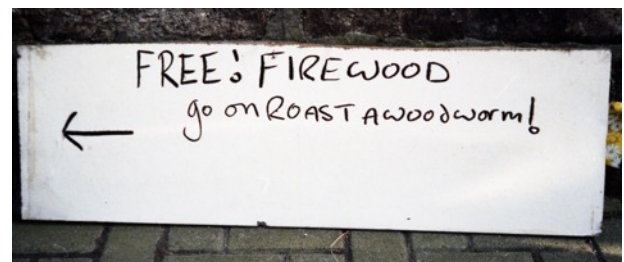 FREE! FIREWOOD
go on ROAST A woodworm!